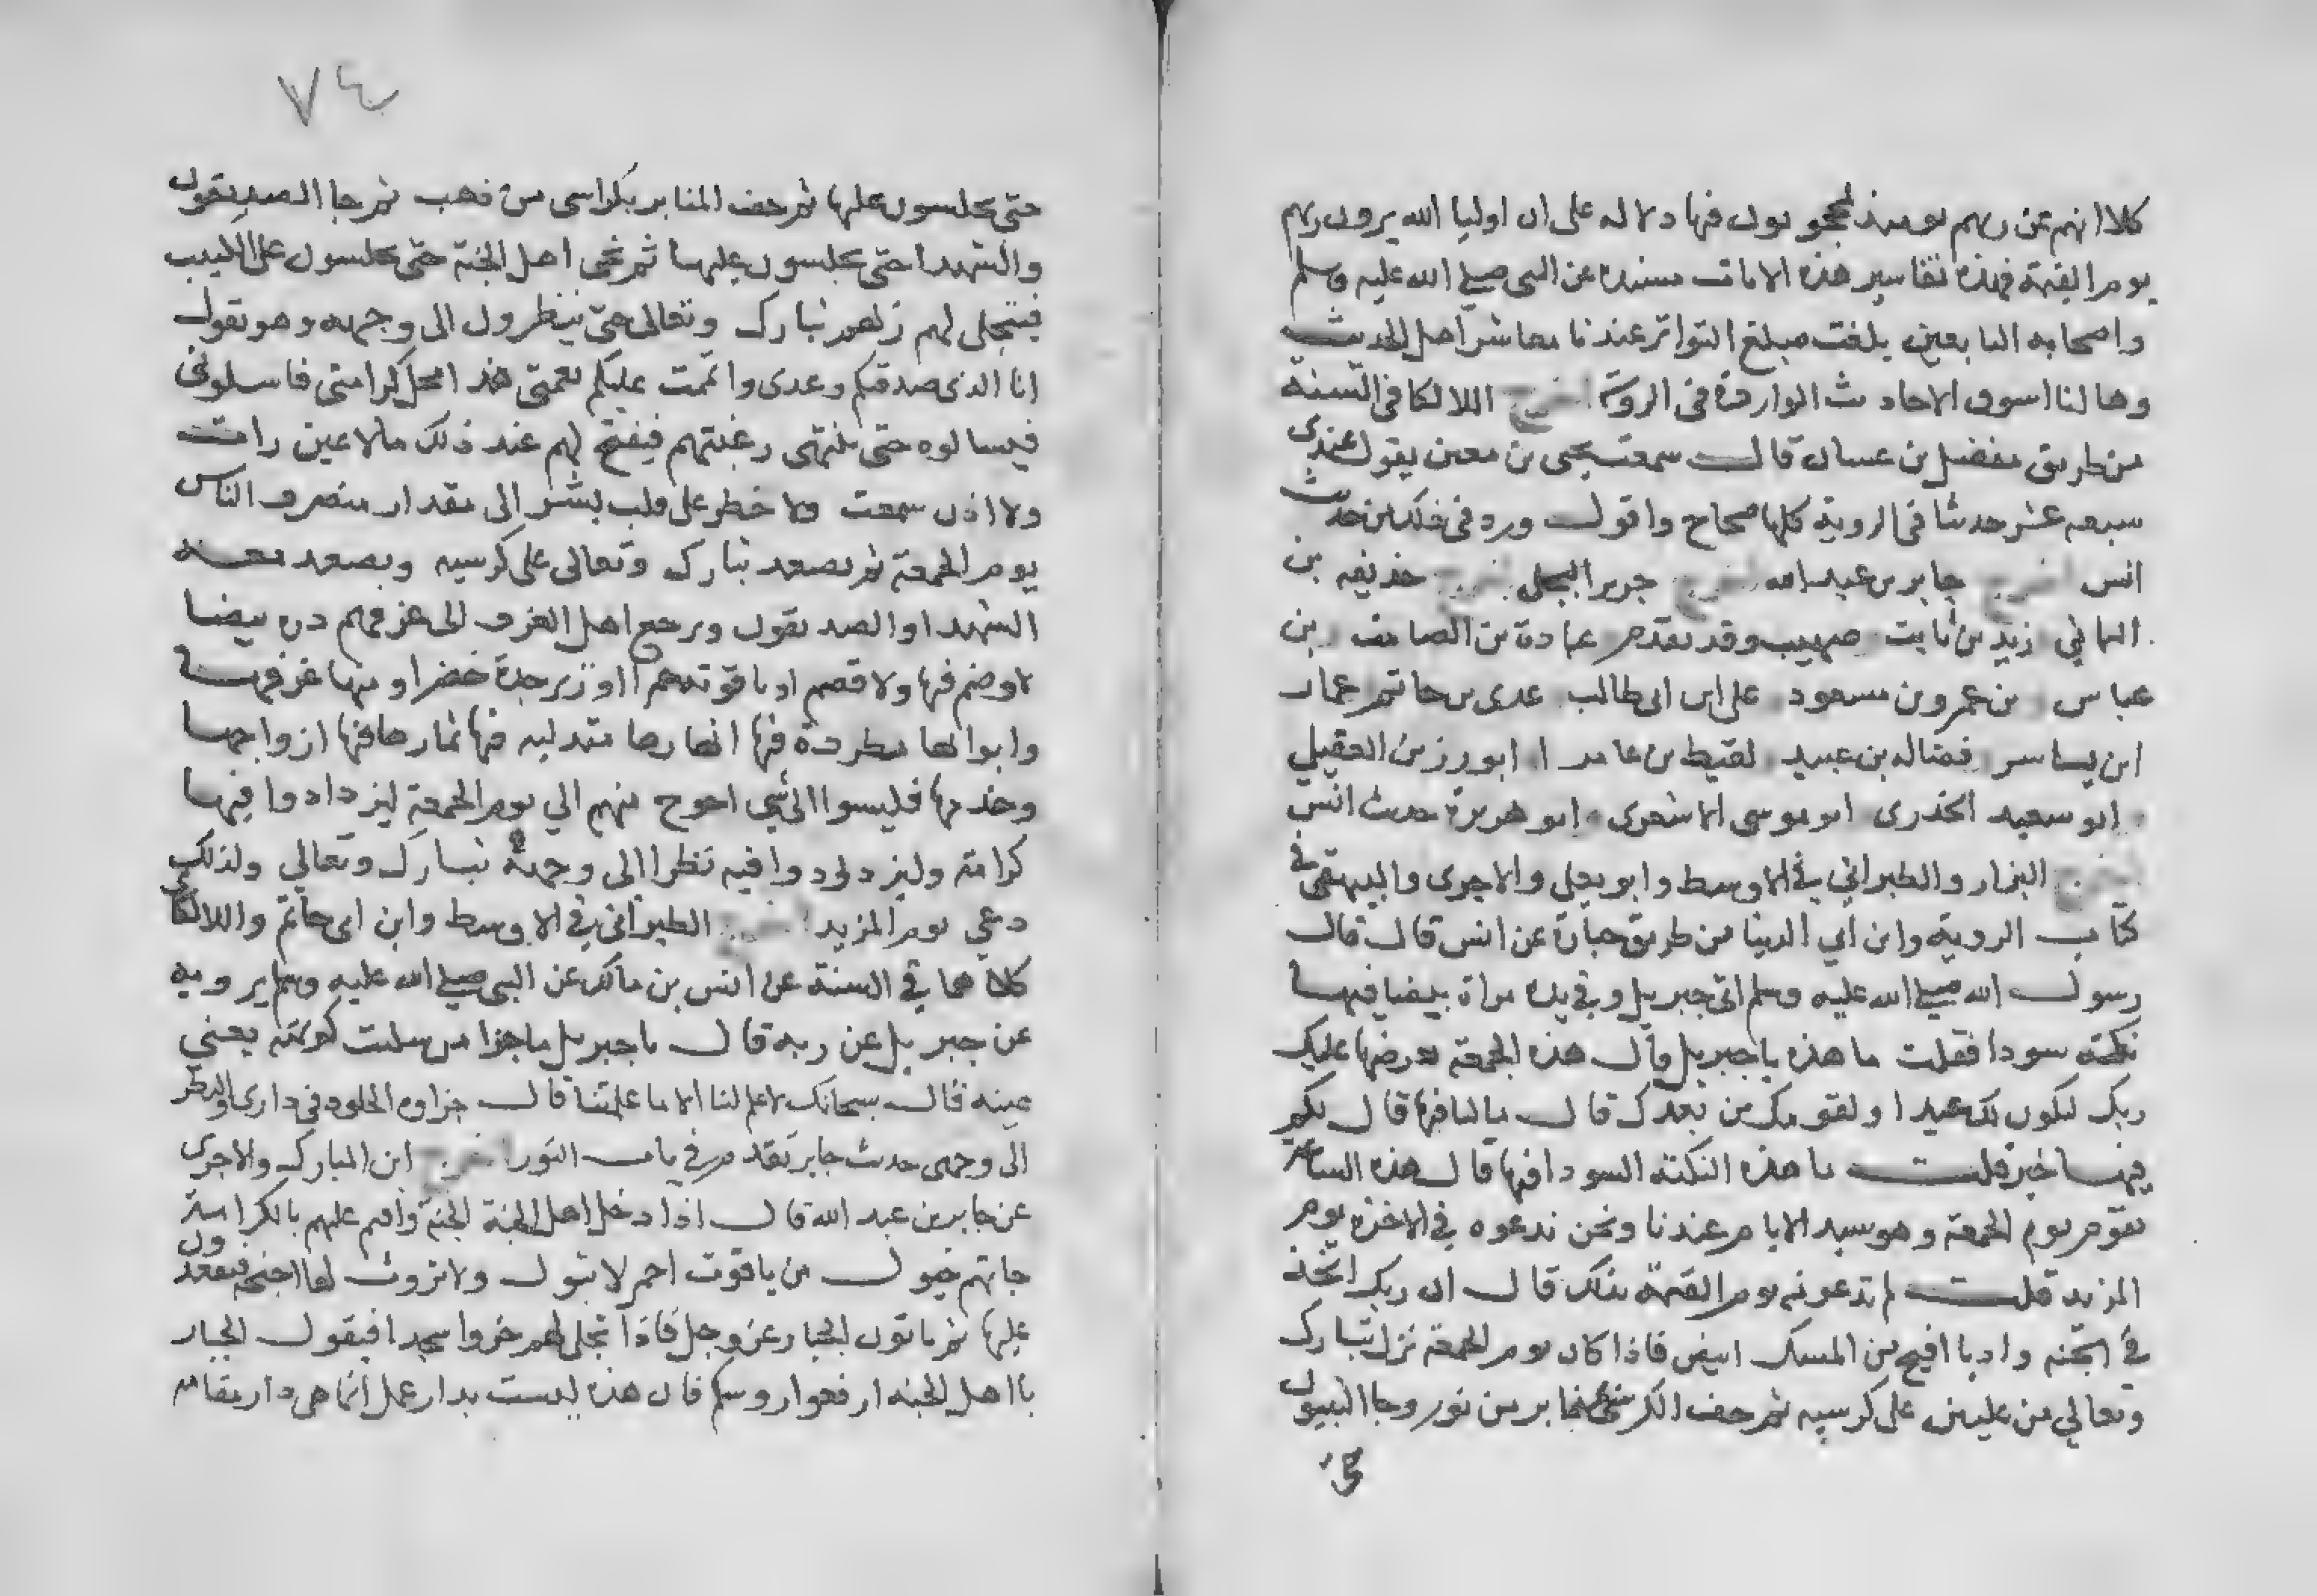 كلا انهم عن ربهم يومىذ لمحجوبون فيها دلاله على ان اوليا الله يرون ربهم
يوم القيمة فهذه تفاسير هذه الايات مسنده عن النبى صلى الله عليه وسلم
واصحابه التابعين بلغت مبلغ التواتر عندنا معاشر اهل الحديث
وها لنا اسوق الاحاديث الواردة فى الروية اخرج اللالكا فى السنة
من طريق مفضل بن غسان قال سمعت يحيى بن معين يقول عندى
سبعه عشر حديثا فى الروية كلها صحاح واقول ورد فى ذلك من حديث
انس جابر بن عبد الله جرير البجلى حذيفه بن
اليمانى زيد بن ثابت صهيب وقد تقدم عبادة بن الصامت بن
عباس بن عمر وبن مسعود على ابن ابى طالب عدى بن حاتم عمار
ابن ياسر فضاله بن عبيد لقيط بن عامر ابو رزين العقيلي
ابو سعيد الخدرى ابو موسى الاشعرى ابو هريرة حديث انس
اخرج البزار والطبرانى في الاوسط وابو يعلى والاجرى والبيهقى فى
كتاب الروية وابن ابي الدنيا من طريق عن انس قال قال
رسول الله صلى الله عليه وسلم اتى جبريل وفي يده مراة بيضا فيها
نكتة سودا فقلت ما هذه يا جبريل قال هذه الجمعة يعرضها عليك
ربك لتكون لك عيدا ولقومك من بعدك قال ما لنا فيها قال لكم
فيها خير قلت ما هذه النكتة السودا فيها قال هذه الساعة
تقوم يوم الجمعة وهو سيد الايام عندنا ونحن ندعوه في الاخرة يوم
المزيد قلت لم تدعونه يوم القيمة بذلك قال ان ربك اتخذ
في الجنه واديا افيح من المسك ابيض فاذا كان يوم الجمعة نزل تبارك
وتعالي من عليين على كرسيه ثم حف الكرسى بمنابر من نور وجا النبيون
حتى
٧٤
حتى يجلسون عليها ثم حف المنابر بكراسى من ذهب ثم جا الصديقون
والشهدا حتى يجلسون عليها ثم يجى اهل الجنة حتى يجلسون على الكثيب
فيتجلى لهم ربهم تبارك وتعالى حتى ينظرون الى وجهه وهو يقول
انا الذى صدقتكم وعدى واتممت عليكم نعمتى هذا محل كرامتى فاسلونى
فيسالوه حتى تنتهى رغبتهم فيفتح لهم عند ذلك ما لا عين رات
ولا اذن سمعت ولا خطر على قلب بشر الى مقدار منصرف الناس
يوم الجمعة ثم يصعد تبارك وتعالى على كرسيه ويصعد معه
الشهدا والصديقون ويرجع اهل الغرف الى غرفهم دره بيضا
لا وضم فيها ولا قصم او ياقوته حمرا او زبرجدة خضرا ومنها غرفها
وابوابها مطردة فيها انهارها متدليه فيها ثمارها فيها ازواجها
وخدمها فليسوا الى شي احوج منهم الي يوم الجمعة ليزدادوا فيها
كرامة وليزدادوا فيه نظرا الى وجهه تبارك وتعالي ولذلك
دعي يوم المزيد اخرج الطبرانى في الاوسط وابن ابى حاتم واللالكائى
كلاهما في السنة عن انس بن مالك عن النبى صلى الله عليه وسلم يرويه
عن جبريل عن ربه قال يا جبريل ما جزا من سلبت كريمته يعني
عينه قال سبحانك لا علم لنا الا ما علمتنا قال جزاوه الخلود فى دارى والنظر
الى وجهى حديث جابر تقدم في باب النور اخرج ابن المبارك والاجرى
عن جابر بن عبد الله قال اذا دخل اهل الجنة الجنة واقيم عليهم بالكرامة
جاتهم خيول من ياقوت احمر لا تبول ولا تروث لها اجنحه فيقعدون
عليها ثم ياتون الجبار عز وجل فاذا تجلى لهم خروا سجدا فيقول الجبار
يا اهل الجنه ارفعوا روسكم فان هذه ليست بدار عمل انما هى دار مقامه